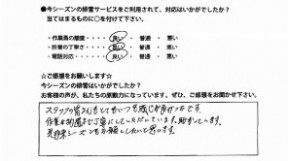 ●今シーズンの排雪サービスをご利用されて、対応はいかがでしたか？
当てはまるものに○を付けて下さい。
・作業員の態度・・・ 良い ・ 普通 ・ 悪い
・排雪の丁寧さ・・・ 良い ・ 普通 ・ 悪い
・電話対応・・・ 良い ・ 普通 ・ 悪い
☆ご感想をお願いします☆
今シーズンの排雪はいかがでしたか？
お客様の声が、私たちの原動力になっています。ぜひ、ご感想をお聞かせ下さい。
スタッフの皆さんとてもいつも感じが良かったです
作業も丁寧にしていただいて助かっています。
来シーズンもお願いしたいと思います。